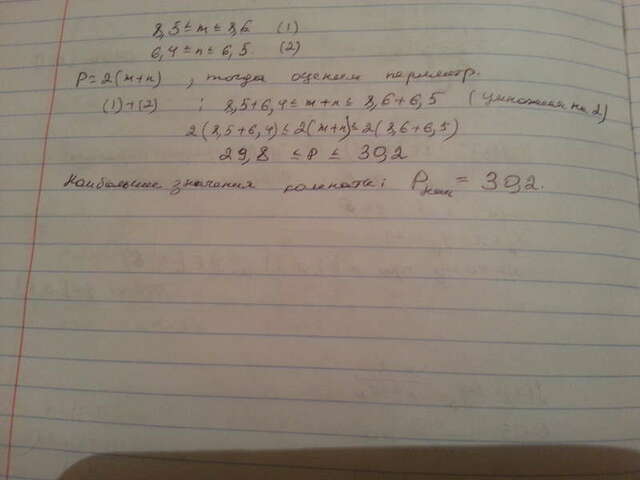 8,5 ≤ m ≤ 8,6 (1)
6,4 ≤ n ≤ 6,5. (2)
P = 2(m+n) , тогда оценим периметр.
(1)+(2) ; 8,5+6,4 ≤ m+n ≤ 8,6+6,5 (умножим на 2)
2(8,5+6,4) ≤ 2(m+n) ≤ 2(8,6+6,5)
29,8 ≤ P ≤ 30,2
Наибольшие значения : P = 30,2.